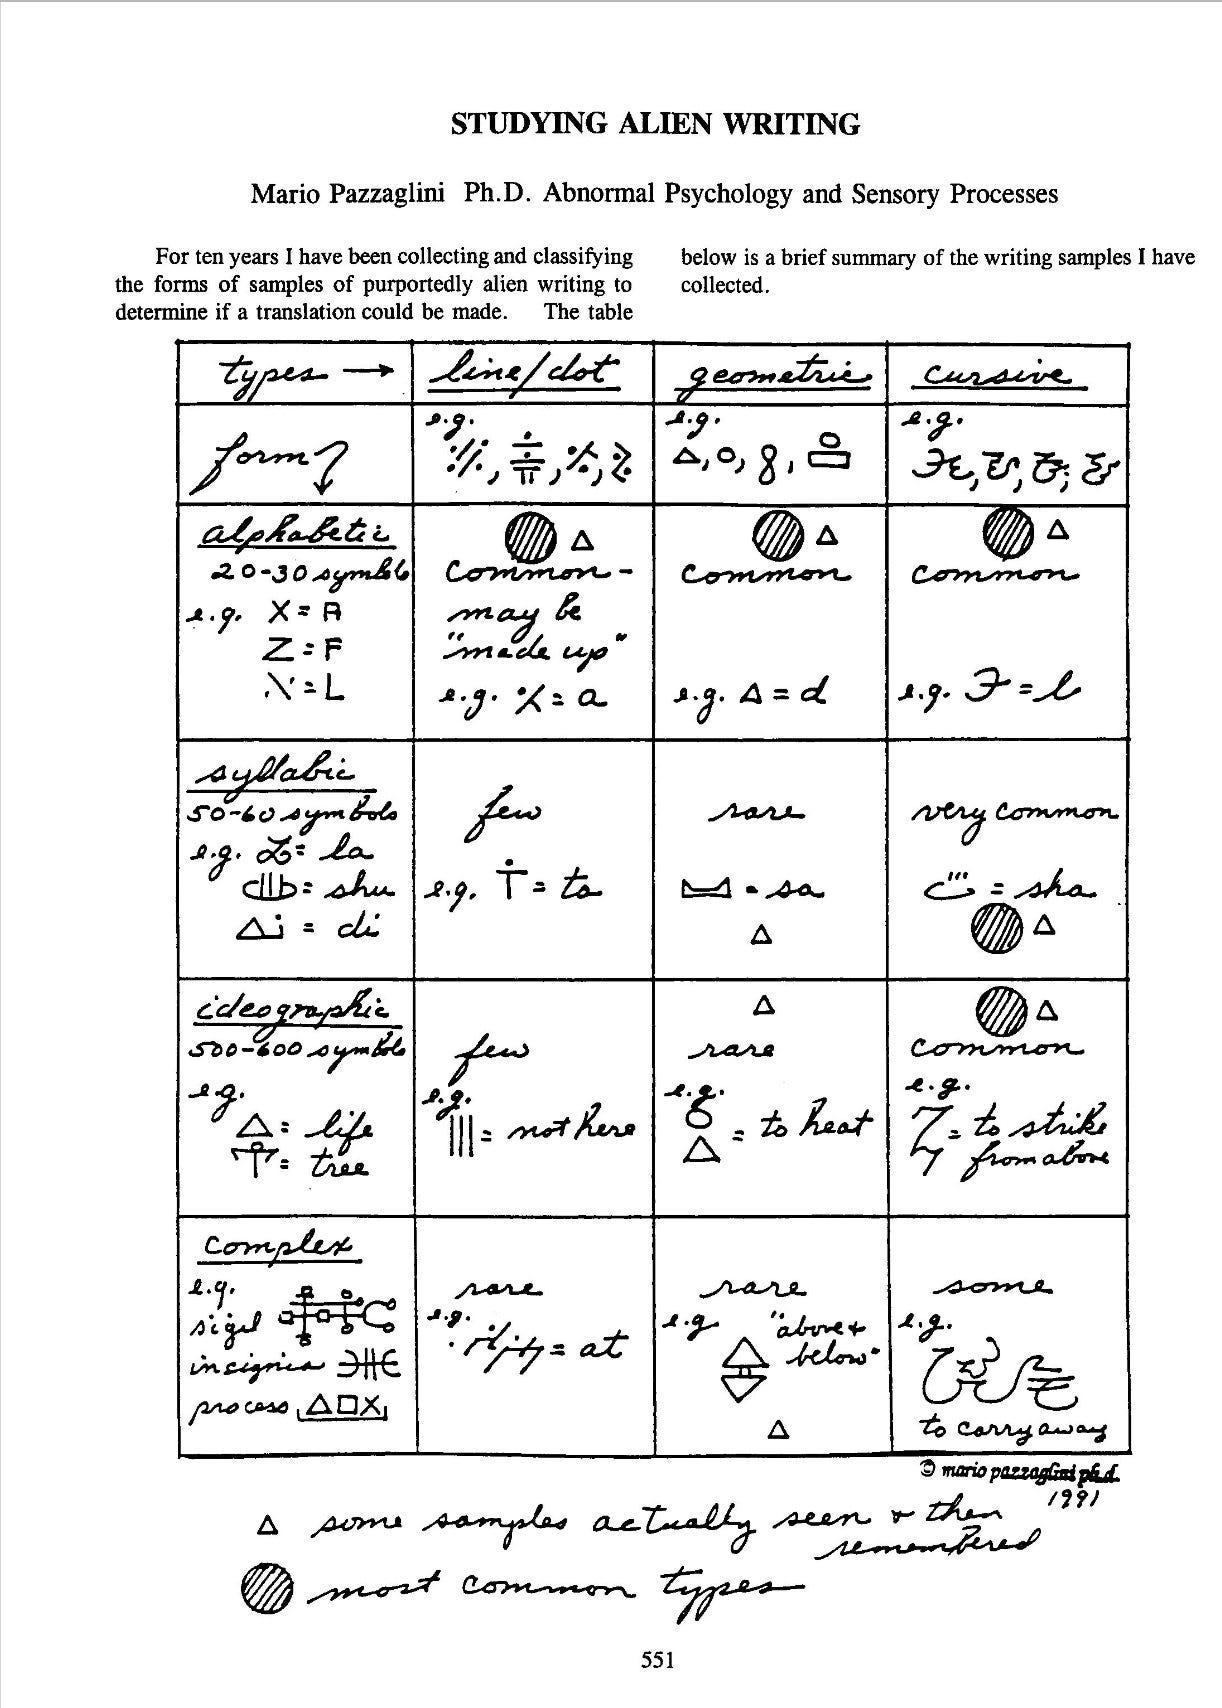 STUDYING ALIEN WRITING
Mario Pazzaglini Ph.D. Abnormal Psychology and Sensory Processes
For ten years I have been collecting and classifying
the forms of samples of purportedly alien writing to
determine if a translation could be made. The table
below is a brief summary of the writing samples I have
collected.
types → line/dot geometric cursive
form
e.g.
e.g.
e.g.
alphabetic
20-30 symbls
e.g. X = A
Z = F
= L
common -
may be
"made up"
e.g. = a
Δ
common
e.g. Δ = d
Δ
common
e.g. = b
Δ
syllabic
50-60 symbols
e.g. = la
= shu
Δi = di
few
e.g. = ta
rare
= sa
Δ
very common
= sha
Δ
ideographic
500-600 symbols
e.g.
Δ = life
= tree
few
e.g.
||| = not here
Δ
rare
e.g.
= to heat
Δ
common
e.g.
= to strike
from above
complex
e.g.
sigil
insignia
process Δ□X
rare
e.g.
= at
rare
e.g. "above +
below"
Δ
some
e.g.
to carry away
© mario pazzaglini ph.d.
1991
Δ some samples actually seen + then
remembered
most common types
551